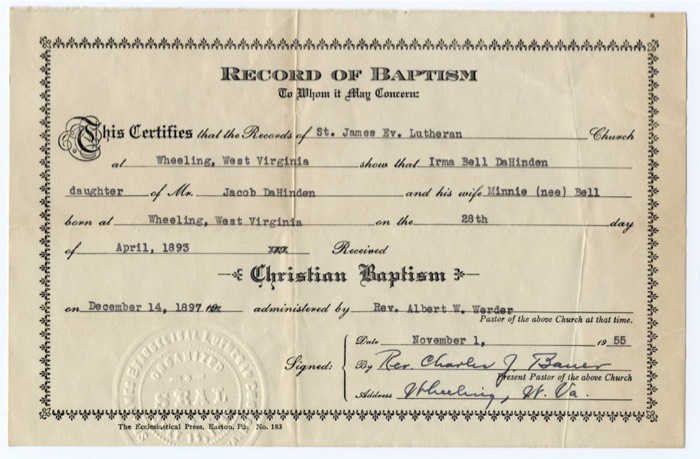 RECORD OF BAPTISM
To Whom it May Concern:
This Certifies that the Records of St. James Ev. Lutheran Church
at Wheeling, West Virginia show that Irma Bell DaHinden
daughter of Mr. Jacob DaHinden and his wife Minnie (nee) Bell
born at Wheeling, West Virginia on the 28th day
of April, 1893 xxx Received
Christian Baptism
on December 14, 1897 administered by Rev. Albert W. Werder
Pastor of the above Church at that time.
Date November 1, 1955
Signed: By Rev. Charles J. Bauer
Present Pastor of the above Church
Address Wheeling, W. Va.
EVANGELICAL LUTHERAN
ORGANIZED
SEAL
The Ecclesiastical Press, Easton, Pa. No. 183